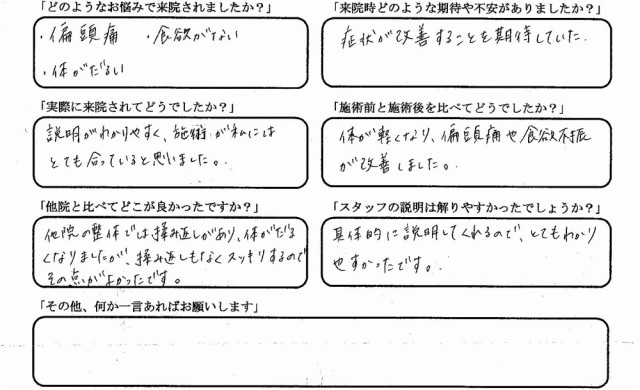 「どのようなお悩みで来院されましたか？」
・偏頭痛　・食欲がない
・体がだるい
「来院時どのような期待や不安がありましたか？」
症状が改善することを期待していた.
「実際に来院されてどうでしたか？」
説明がわかりやすく、施術が私には
とても合っていると思いました。
「施術前と施術後を比べてどうでしたか？」
体が軽くなり、偏頭痛や食欲不振
が改善しました。
「他院と比べてどこが良かったですか？」
他院の整体では揉み返しがあり、体がだる
くなりましたが、揉み返しもなくスッキリするので
その点がよかったです。
「スタッフの説明は解りやすかったでしょうか？」
具体的に説明してくれるので、とてもわかり
やすかったです。
「その他、何か一言あればお願いします」